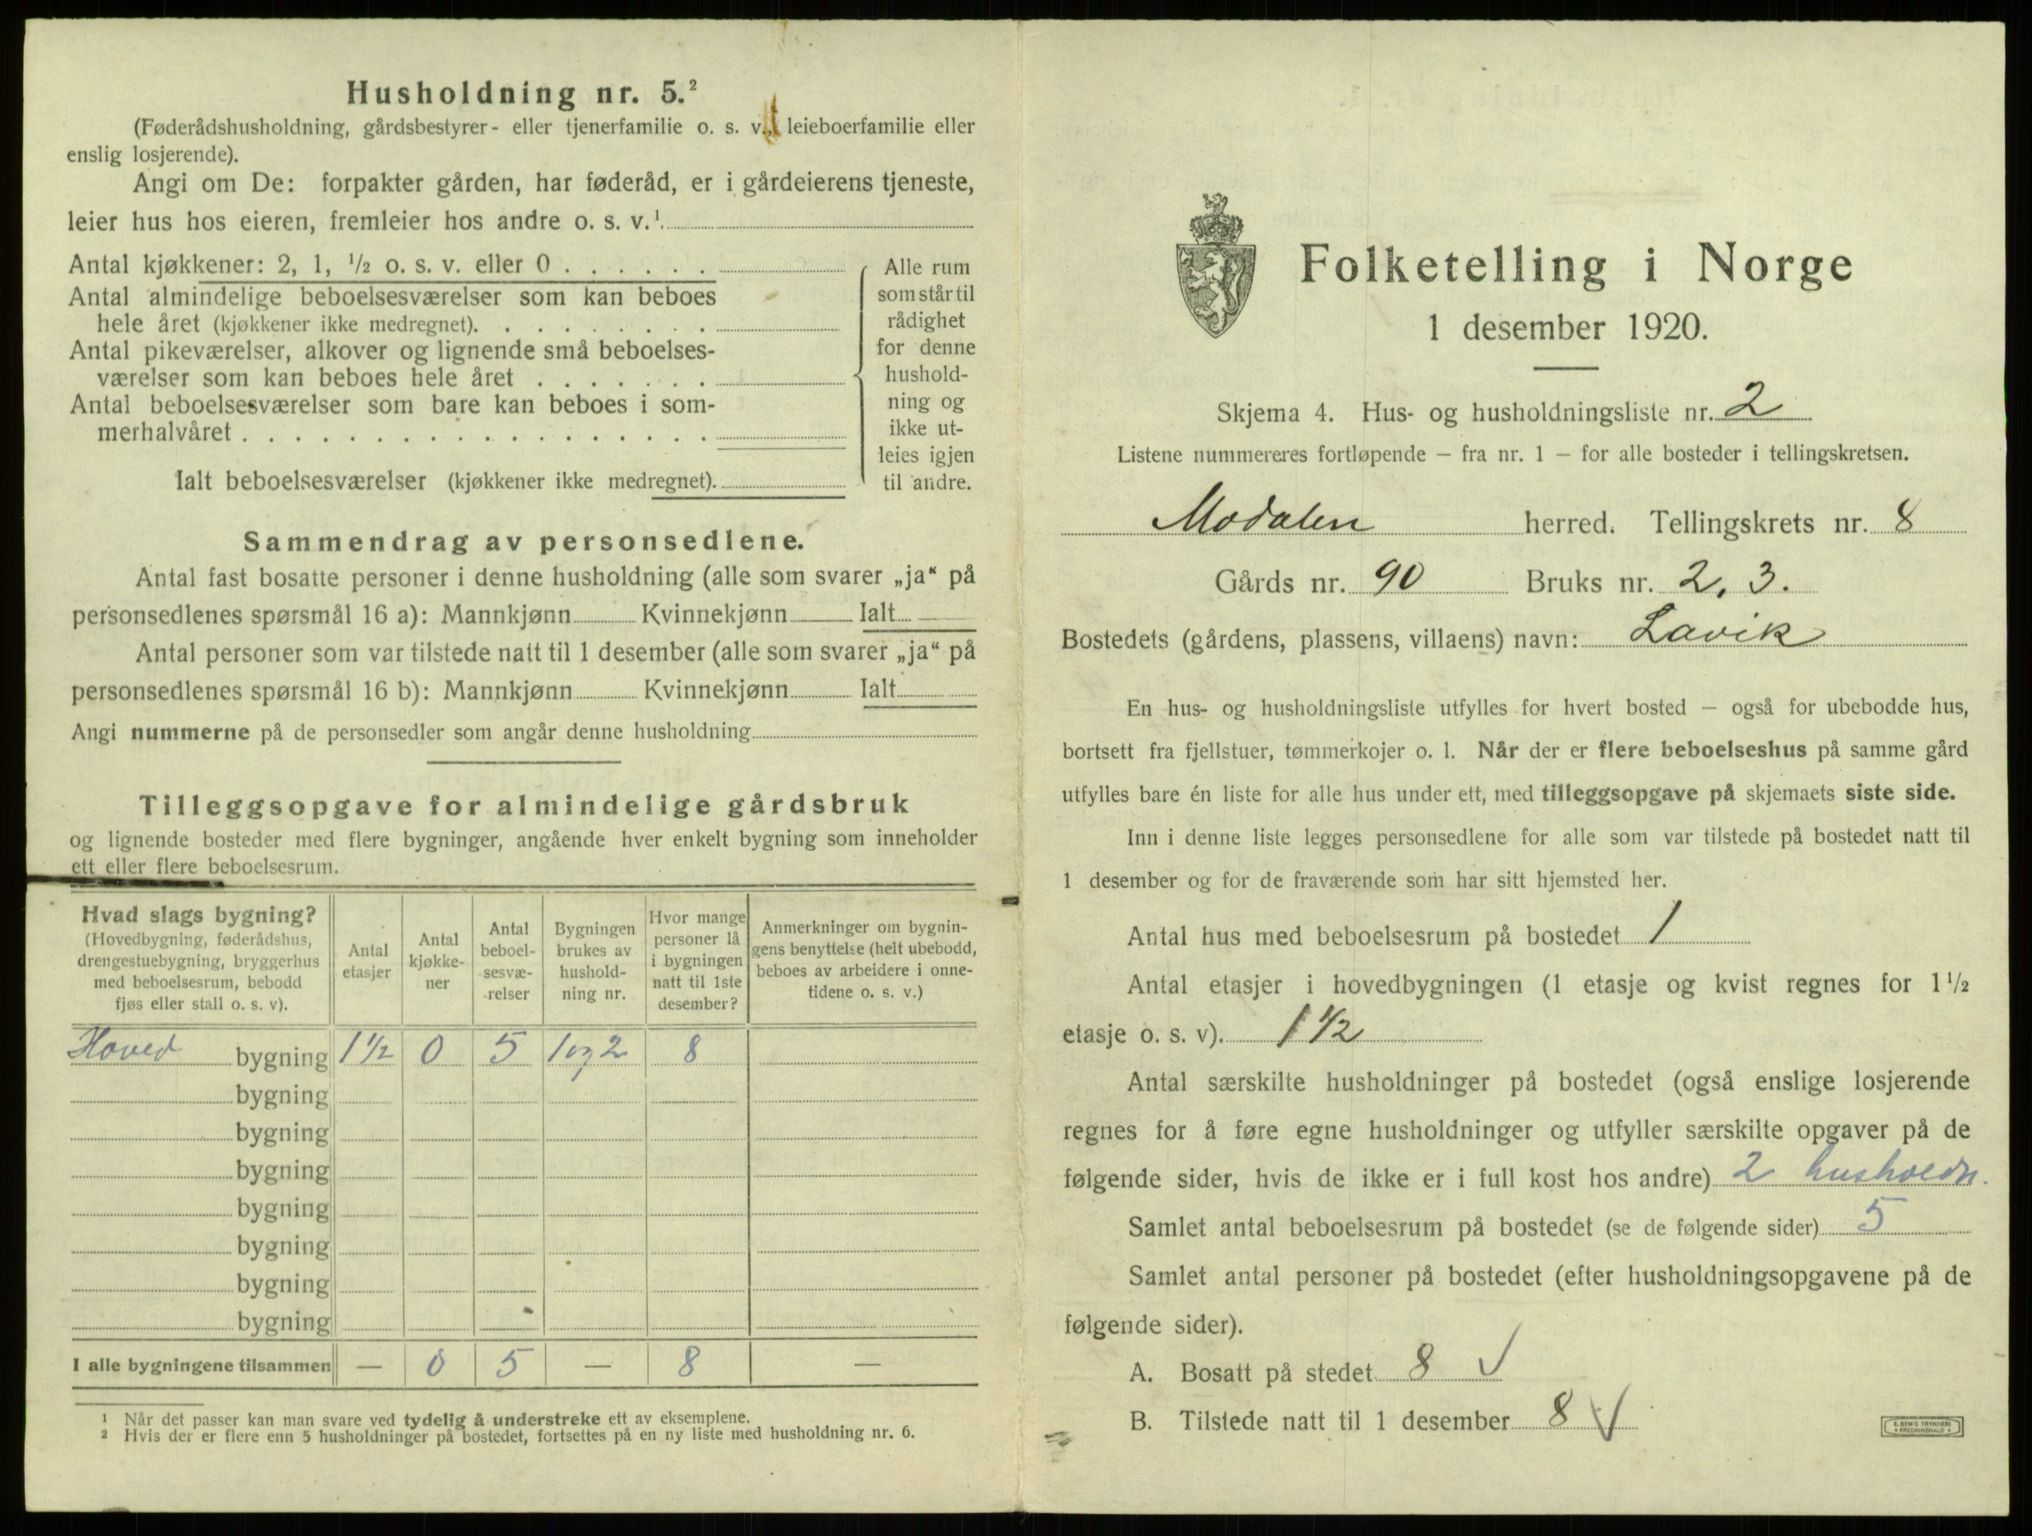 Husholdning nr. 5.²
(Føderådshusholdning, gårdsbestyrer- eller tjenerfamilie o. s. v., leieboerfamilie eller
enslig losjerende).
Angi om De: forpakter gården, har føderåd, er i gårdeierens tjeneste,
leier hus hos eieren, fremleier hos andre o. s. v.¹
Antal kjøkkener: 2, 1, ½ o. s. v. eller 0 . . . . . .
Antal almindelige beboelsesværelser som kan beboes
hele året (kjøkkener ikke medregnet). . . . . . . . .
Antal pikeværelser, alkover og lignende små beboelses-
værelser som kan beboes hele året . . . . . . .
Antal beboelsesværelser som bare kan beboes i som-
merhalvåret . . . . . . . . . . . . . . . . . .
Ialt beboelsesværelser (kjøkkener ikke medregnet).
Alle rum
som står til
rådighet
for denne
hushold-
ning og
ikke ut-
leies igjen
til andre.
Sammendrag av personsedlene.
Antal fast bosatte personer i denne husholdning (alle som svarer „ja“ på
personsedlenes spørsmål 16 a): Mannkjønn Kvinnekjønn Ialt
Antal personer som var tilstede natt til 1 desember (alle som svarer „ja“ på
personsedlenes spørsmål 16 b): Mannkjønn Kvinnekjønn Ialt
Angi nummerne på de personsedler som angår denne husholdning
Tilleggsopgave for almindelige gårdsbruk
og lignende bosteder med flere bygninger, angående hver enkelt bygning som inneholder
ett eller flere beboelsesrum.
Hvad slags bygning?
(Hovedbygning, føderådshus,
drengestuebygning, bryggerhus
med beboelsesrum, bebodd
fjøs eller stall o. s. v).
Antal
etasjer
Antal
kjøkke-
ner
Antal
beboel-
sesvæ-
relser
Bygningen
brukes av
hushold-
ning nr.
Hvor mange
personer lå
i bygningen
natt til 1ste
desember?
Anmerkninger om bygnin-
gens benyttelse (helt ubebodd,
beboes av arbeidere i onne-
tidene o. s. v.)
Hoved bygning 1½ 0 5 1 og 2 8
bygning
bygning
bygning
bygning
bygning
bygning
bygning
I alle bygningene tilsammen — 0 5 — 8 —
¹ Når det passer kan man svare ved tydelig å understreke ett av eksemplene.
² Hvis der er flere enn 5 husholdninger på bostedet, fortsettes på en ny liste med husholdning nr. 6.
Folketelling i Norge
1 desember 1920.
Skjema 4. Hus- og husholdningsliste nr. 2
Listene nummereres fortløpende — fra nr. 1 — for alle bosteder i tellingskretsen.
Modalen herred. Tellingskrets nr. 8
Gårds nr. 90 Bruks nr. 2, 3.
Bostedets (gårdens, plassens, villaens) navn: Lavik
En hus- og husholdningsliste utfylles for hvert bosted — også for ubebodde hus,
bortsett fra fjellstuer, tømmerkojer o. l. Når der er flere beboelseshus på samme gård
utfylles bare én liste for alle hus under ett, med tilleggsopgave på skjemaets siste side.
Inn i denne liste legges personsedlene for alle som var tilstede på bostedet natt til
1 desember og for de fraværende som har sitt hjemsted her.
Antal hus med beboelsesrum på bostedet 1
Antal etasjer i hovedbygningen (1 etasje og kvist regnes for 1½
etasje o. s. v). 1½
Antal særskilte husholdninger på bostedet (også enslige losjerende
regnes for å føre egne husholdninger og utfyller særskilte opgaver på de
følgende sider, hvis de ikke er i full kost hos andre) 2 husholdn.
Samlet antal beboelsesrum på bostedet (se de følgende sider) 5
Samlet antal personer på bostedet (efter husholdningsopgavene på de
følgende sider).
A. Bosatt på stedet 8 √
B. Tilstede natt til 1 desember 8 √
E. SEM'S TRYKKERI
FREDRIKSHALD